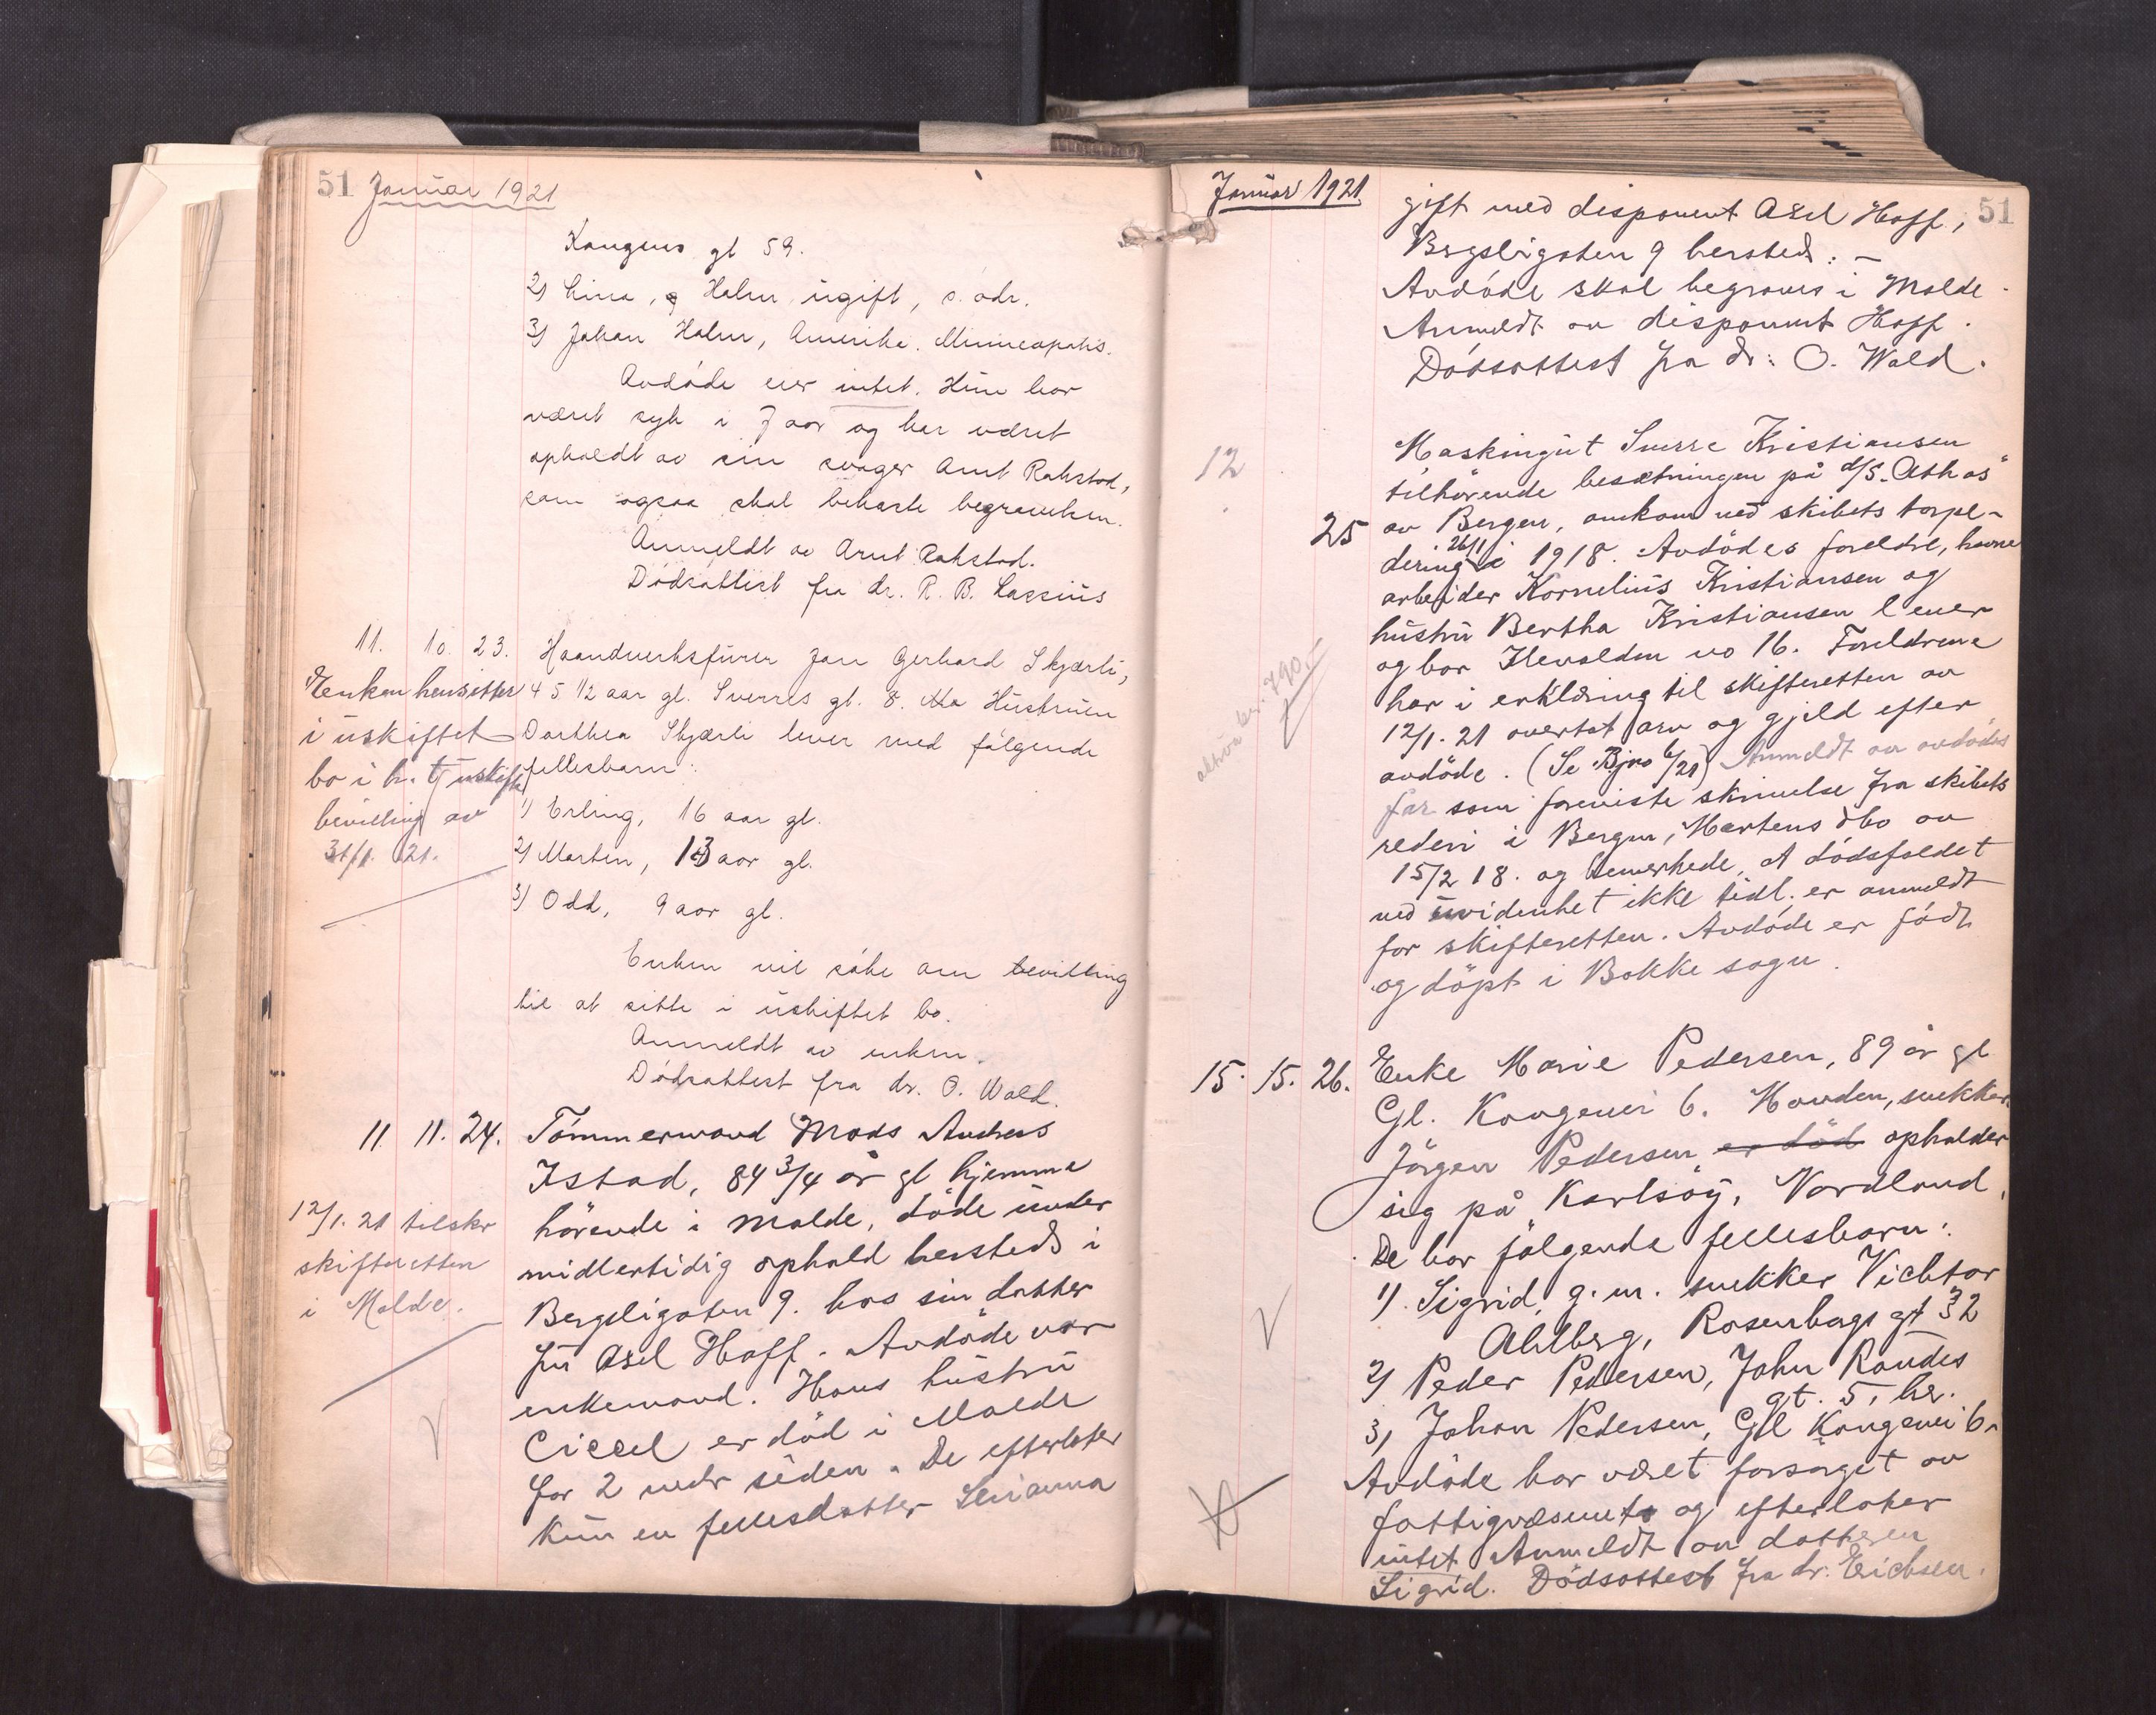 51 Januar 1921
Kongens gt 59.
2) Lina, g Holm ugift, s. adr.
3) Johan Holm, Amerika. Minneapolis.
Avdøde eier intet. Hun har
været syk i 7 aar og har været
opholdt av sin svoger Arnt Rakstad,
som ogsaa skal bekoste begravelsen.
Anmeldt av Arnt Rakstad.
Dødsattest fra dr. R. B. Lassiüs
11. 10. 23. Haandverksfürer Jon Gerhard Skjærli,
Enken hensitter 45 1/2 aar gl. Sverres gt. 8. Hüstrüen
i üskiftet Dorthea Skjærli lever med følgende
bo i h. t üskift fellesbarn:
bevilling av 1) Erling, 16 aar gl.
31/1. 21. 2) Morten, 13 aar gl.
3) Odd, 9 aar gl.
Enken vil søke om bevilling
til at sitte i üskiftet bo.
Anmeldt av enken.
Dødsattest fra dr. O. Wold.
11. 11. 24. Tømmermand Mads Andreas
Istad, 84 3/4 år gl hjemme
12/1. 21 tilskr hörende i Molde, døde ünder
skifteretten midlertidig ophold hersteds i
i Molde. Bergsligaten 9. hos sin datter
frü Axel Hoff. Avdøde var
enkemand. Hans hüstrü
Cissel er død i Molde
for 2 mdr siden. De efterlater
kün en fellesdatter
Januar 1921
gift med disponent Axel Hoff, 51
Bergsligaten 9 hersteds. -
Avdöde skal begraves i Molde.
Anmeldt av disponent Hoff.
Dödsattest fra dr: O. Wold.
12 Maskingüt Sverre Kristiansen
tilhörende besætningen på d/s. "Athos"
25 av Bergen, omkom ved skibets torpe-
dering 26/1 i 1918. Avdödes foreldre, havne
arbeider Kornelius Kristiansen og
hüstrü Bertha Kristiansen lever
og bor Ilevolden no 16. Foreldrene
har i erklæring til skifteretten av
12/1. 21 overtat arv og gjeld efter
avdöde. (Se Bjno 6/21) Anmeldt av avdødes
far som foreviste skrivelse fra skibets
rederi i Bergen, Martens dbo av
15/2 18. og bemerkede, at dödsfaldet
ved üvidenhet ikke tidl. er anmeldt
for skifteretten. Avdöde er född
og döpt i Bakke sogn.
790,-
15. 15. 26. Enke Marie Pedersen, 89 år gl
Gl. Kongevei 6. Manden, snekker
Jörgen Pedersen er död opholder
sig på Karlsøy, Nordland.
De har fölgende fellesbarn:
1). Sigrid, g. m. snekker Vichtor
Ahlberg, Rosenborgs gt 32
2) Peder Pedersen, John Roüdes
gt. 5, her.
3, Johan Pedersen, Gl Kongevei 6.
Avdöde har været forsörget av
fattigvæsenet og efterlater
intet Anmeldt av datteren
Sigrid. Dödsattest fra dr. Erichsen.